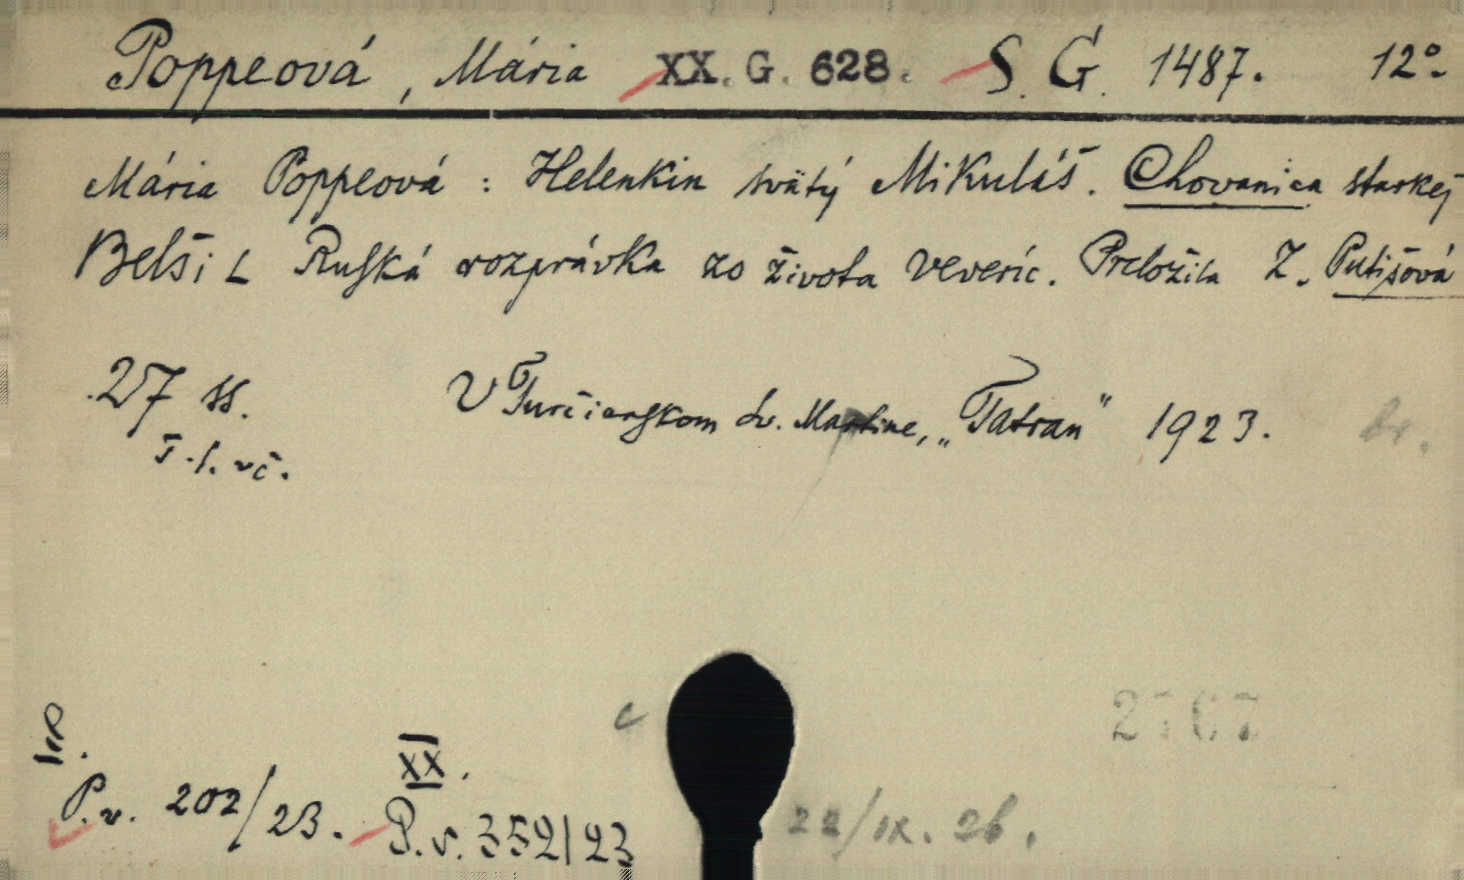 Poppeová, Mária XX. G. 628. S. G. 1487. 12°.
Mária Poppeová : Helenkin svätý Mikuláš. Chovanica starkej
Belši L Ruská rozprávka zo života veveríc. Preložila Z. Putišová
27 ss. V Turčianskom Sv. Martine, „Tatran" 1923. br.
XX.
P. v. 202/23. P. v. 352/23
22/IX. 26.